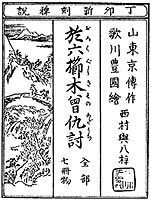 丁卯新刻稗説
山東京傳作
歌川豊國繪
西村與八梓
於六櫛木曾仇討
おろくぐしきそのあだうち
全部
七冊物